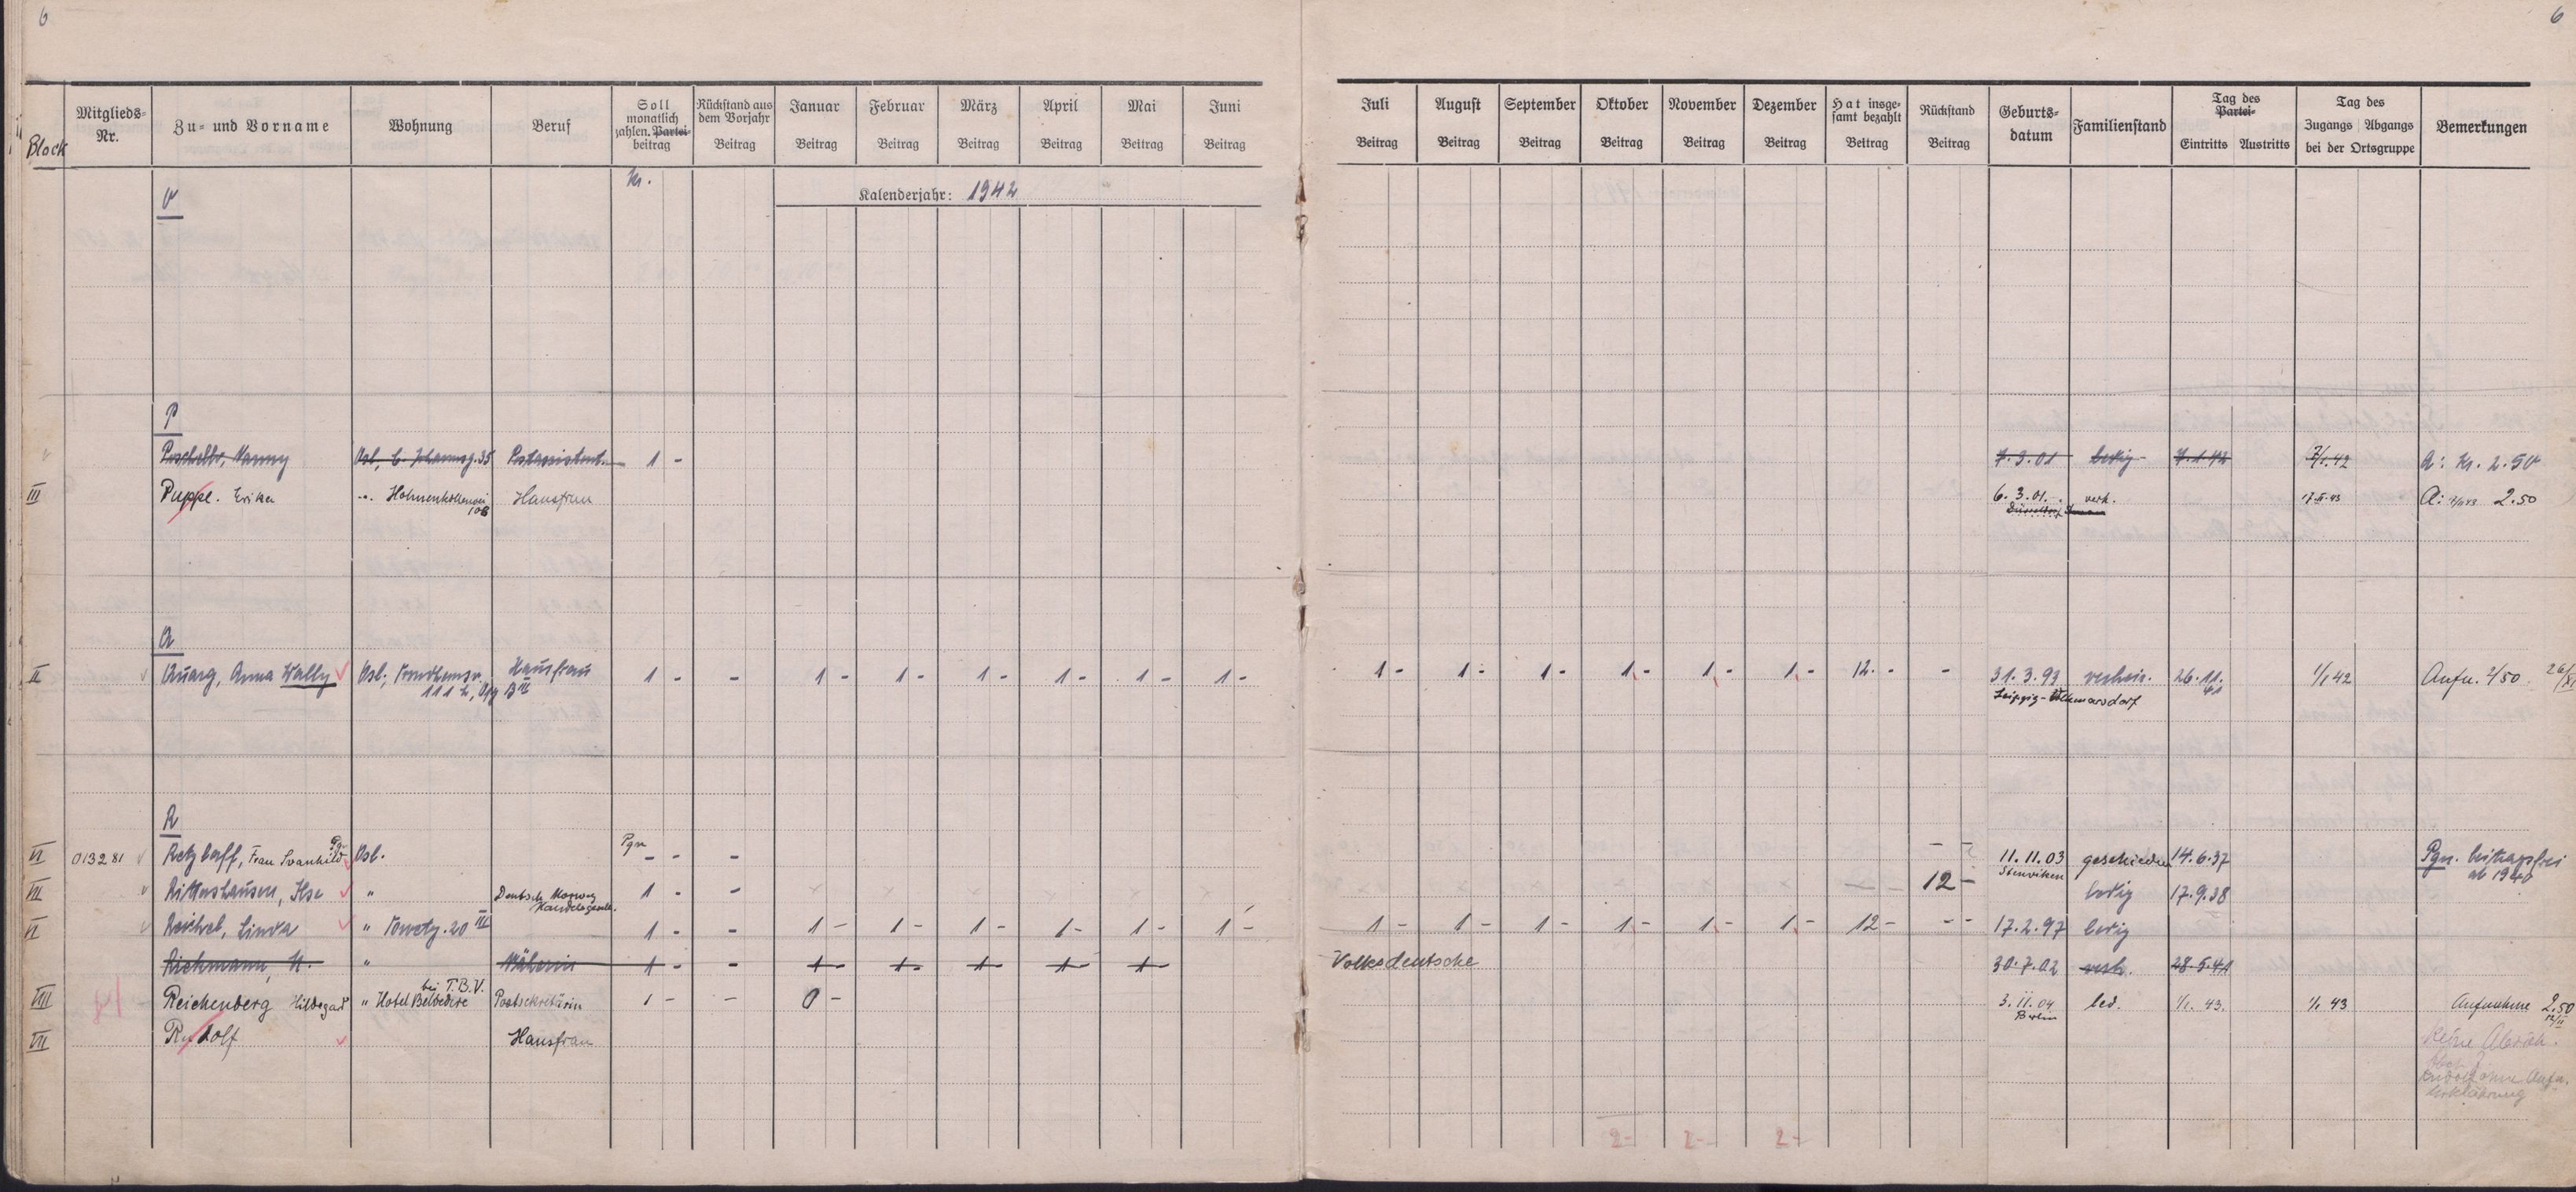 6
6
Block
Mitglieds-Nr.
Zu- und Vorname
Wohnung
Beruf
Soll monatlich zahlen. Partei-beitrag
Rückstand aus dem Vorjahr Beitrag
Januar Beitrag
Februar Beitrag
März Beitrag
April Beitrag
Mai Beitrag
Juni Beitrag
Juli Beitrag
August Beitrag
September Beitrag
Oktober Beitrag
November Beitrag
Dezember Beitrag
Hat insge-samt bezahlt Beitrag
Rückstand Beitrag
Geburts-datum
Familienstand
Tag des Partei- Eintritts Austritts
Tag des Zugangs Abgangs bei der Ortsgruppe
Bemerkungen
Kr.
Kalenderjahr: 1942
P
Nanny 35 1 - 7.3.01 ledig 7.1.42 7/1.42 A: Kr. 2.50
III Puppe. Erika Hausfrau 6.3.01. verh. 17.II.43 A: 2.50
Düsseldorf
Q
II Quarg, Anna Wally Osl; Hausfrau 1 - - 1 - 1 - 1 - 1 - 1 - 1 - 1 - 1 - 1 - 1 - 1 - 1 - 12 - - 31.3.93 verheir. 26.11. 1/1 42 Aufn. 2/50
111 B III 41
Leipzig-Volkmarsdorf
R
VI 013281 Retzlaff, Frau Svanhild Pgn Osl. Pgn - - - - - 11.11.03 geschieden 14.6.37 Pgn. beitragsfrei
Stenviken ab 1940
VII Rittershausen, Ilse " Deutsch. Norweg. Handelsgesell. 1 - - 12 - ledig 17.9.38
VI Reichel, Linda " 20 III 1 - - 1 - 1 - 1 - 1 - 1 - 1 - 1 - 1 - 1 - 1 - 1 - 1 - 12 - - - 17.2.97 ledig
Richmann, N. " Näherin 1 - - 1 - 1 - 1 - 1 - 1 - Volksdeutsche 30.7.02 verh. 28.5.41
bei T.B.V.
VIII Reichenberg Hildegard " Hotel Belvedere Postsekretärin 1 - - 0 - 3.11.04 led. 1/1. 43. 1/1 43 Aufnahme 2.50
Berlin
VII Rudolf Hausfrau
Keine
Rudolf ohne Aufn.
Erklärung
2 - 2 - 2 -